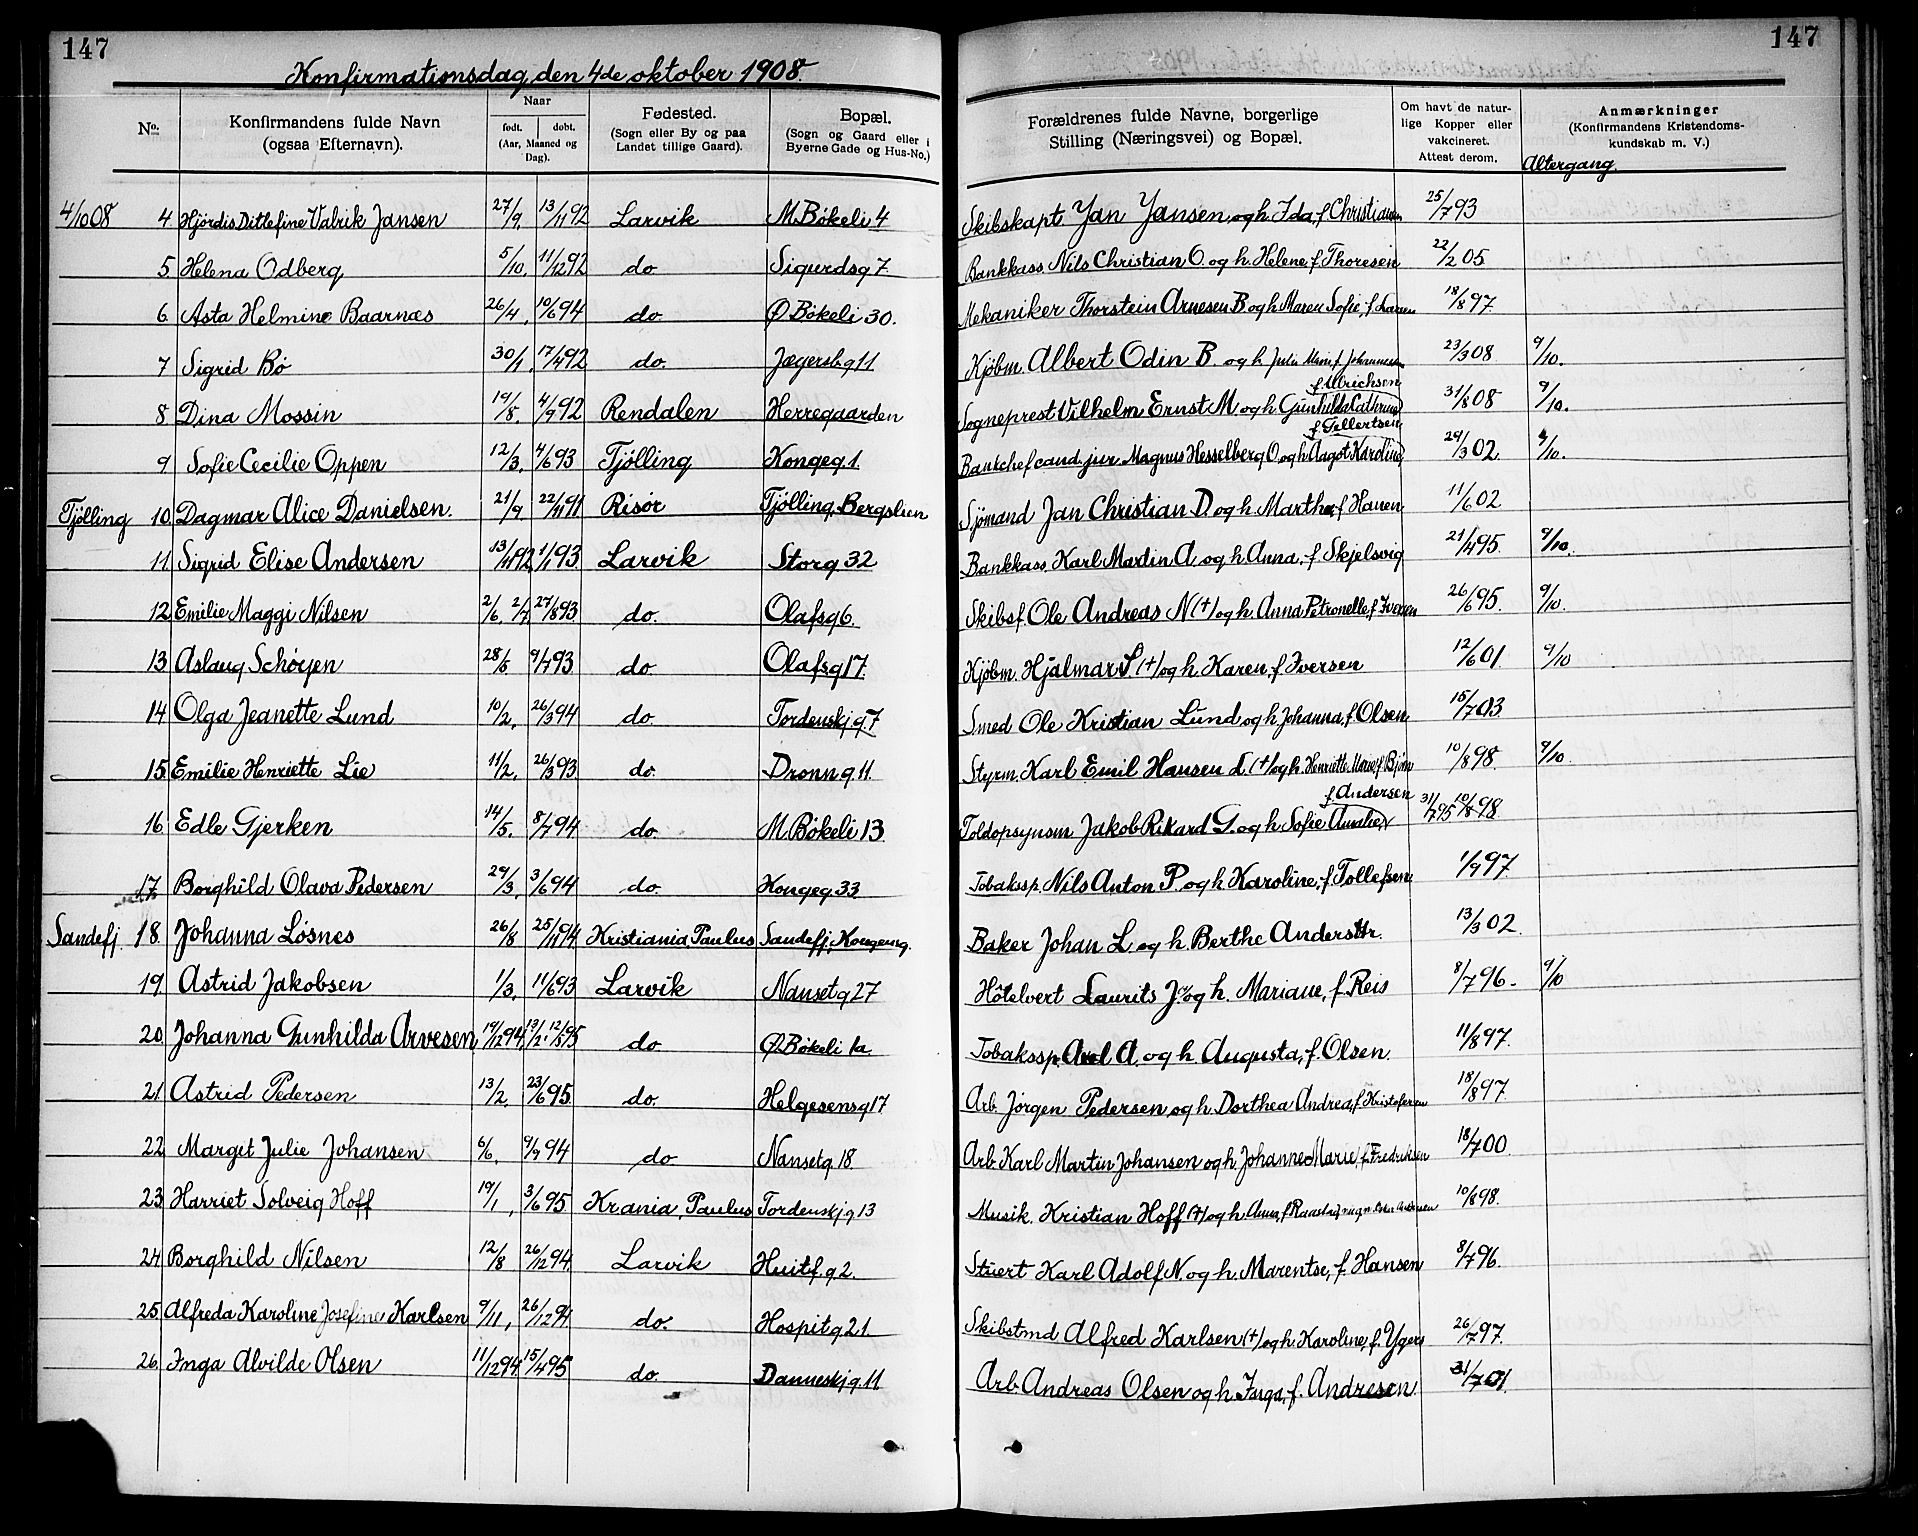 147
147
Konfirmationsdag, den 4de oktober 1908.
No.
Konfirmandens fulde Navn (ogsaa Efternavn).
Naar
født. døbt.
(Aar, Maaned og Dag).
Fødested.
(Sogn eller By og paa Landet tillige Gaard).
Bopæl.
(Sogn og Gaard eller i Byerne Gade og Hus-No.)
Forældrenes fulde Navne, borgerlige Stilling (Næringsvei) og Bopæl.
Om havt de naturlige Kopper eller vakcineret. Attest derom.
Anmærkninger
(Konfirmandens Kristendomskundskab m. V.)
Altergang.
4/10 08 4 Hjördis Ditlefine Valrik Jansen 27/9, 13/11 92 Larvik M Bökeli 4 Skibskapt. Jan Jansen, og h. Ida, f. Christiansen 25/7 93
5 Helena Odberg 5/10, 11/12 92 do Sigurdsg 7 Bankkass. Nils Christian O. og h. Helene f. Thoresen 22/2 05
6 Asta Helmine Baarnæs 26/4, 10/6 94 do. Ø Bökeli 30. Mekaniker Thorstein Arnesen B. og h. Maren Sofie, f. Larsen 18/8 97.
7 Sigrid Bø 30/1, 17/4 92 do. Jægersb g 11 Kjöbm. Albert Odin B. og h. Julia Marie f. Johannessen 23/3 08 9/10.
8 Dina Mossin 19/8. 4/9 92 Rendalen Herregaarden Sogneprest Vilhelm Ernst M. og h. Gunhilda Cathrine f. Ulrichsen 31/8 08 9/10.
9 Sofie Cecilie Oppen 12/3, 4/6 93 Tjölling Kongeg 1. Bankchef cand. jur. Magnus Hesselberg O. og h. Aagot Karoline f. Gellertsen 29/3 02. 9/10.
Tjölling 10 Dagmar Alice Danielsen. 21/9, 22/11 91 Risör Tjölling, Bergslien Sjömand Jan Christian D. og h. Marthe, f. Hansen 11/6 02
11 Sigrid Elise Andersen 13/11 92 1/1 93 Larvik Storg 32 Bankkass. Karl Martin A. og h. Anna, f. Skjelsvig 21/4 95. 9/10.
12 Emilie Maggi Nilsen 2/6, 2/7 27/8 93 do. Olafsg 6. Skibsf. Ole Andreas N (+) og h. Anna Petronelle f. Iversen 26/6 95. 9/10.
13 Aslaug Schöyen 28/5 9/7 93 do. Olafsg 17. Kjöbm. Hjalmar S (+) og h. Karen f. Iversen 12/6 01. 9/10
14 Olga Jeanette Lund 10/2, 26/3 94 do Tordenskj g. 7 Smed Ole Kristian Lund og h. Johanna, f. Olsen 15/7 03.
15 Emilie Henriette Lie 11/2, 26/3 93 do. Dronn g 11. Styrm. Karl Emil Hansen L. (+) og h. Henriette Marie f. Björn 10/8 98. 9/10.
16 Edle Gjerken 14/5. 8/7 94 do. M Bökeli 13. Toldopsynsm Jakob Rikard G. og h. Sofie Amalie f. Andersen 31/7 95 10/8 98.
17 Borghild Olava Pedersen 29/3. 3/6 94 do. Kongeg 33 Tobakssp. Nils Anton P. og h. Karoline, f. Tollefsen 1/9 97
Sandefj. 18. Johanna Lösnes 26/8 25/11 94 Kristiania, Paulus Sandefj, Kongeng. Baker Johan L. og h. Berthe Andersdtr. 13/3 02
19 Astrid Jakobsen 1/3, 11/6 93 Larvik Nanset g 27 Hôtelvert Laurits J. og h. Mariane, f. Reis 8/7 96. 9/10
20 Johanna Gunhilda Arvesen 19/12 94 13/2. 12/5 95 do Ø Bökeli 1a. Tobakssp. Axel A. og h. Augusta, f. Olsen. 11/8 97.
21 Astrid Pedersen 13/2 23/6 95. do. Helgesensg 17 Arb. Jörgen Pedersen og h. Dorthea Andrea, f. Kristofersen 18/8 97.
22 Margit Julie Johansen 6/6, 9/9 94 do Nansetg. 18. Arb. Karl Martin Johansen og h. Johanne Marie, f. Fredriksen 18/7 00.
23 Harriet Solveig Hoff 19/1, 3/6 95 Krania, Paulus Tordenskj g 13 Musik. Kristian Hoff (+) og h. Anna, f. 10/8 98.
24 Borghild Nilsen 12/8 26/12 94. Larvik Huitf. g 2. Stuert Karl Adolf N. og h. Marentse, f. Hansen 8/7 96.
25. Alfreda Karoline Josefine Karlsen 9/11, 26/12 94 do. Hospitg 21. Skibstmd Alfred Karlsen (+) og h. Karoline, f. 26/7 97.
26. Inga Alvilde Olsen 11/12 94 15/4 95 do Danneskj g. 11 Arb. Andreas Olsen og h. Inga, f. Andresen 31/7 01.